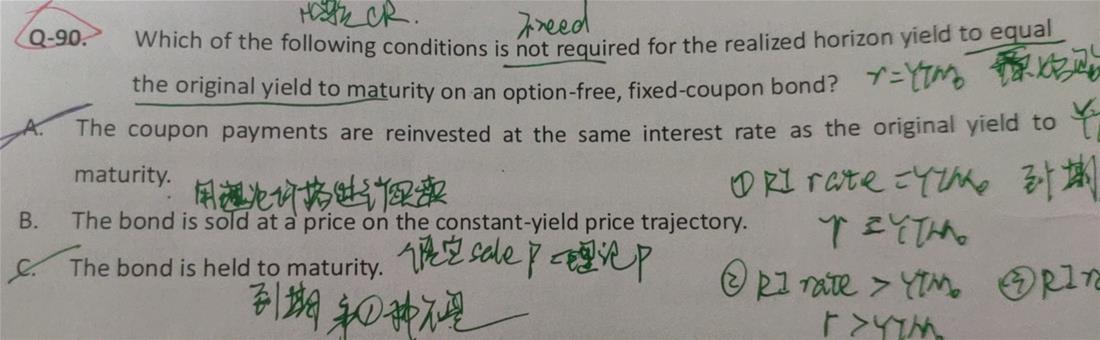 CR.
不need
Q-90. Which of the following conditions is not required for the realized horizon yield to equal
the original yield to maturity on an option-free, fixed-coupon bond? r=YTM₀
A. The coupon payments are reinvested at the same interest rate as the original yield to
maturity. ① RI rate = YTM₀ 到期
B. The bond is sold at a price on the constant-yield price trajectory. r = YTM₀
C. The bond is held to maturity. sale P = 理论P
② RI rate > YTM₀ ③ RI
到期
r > YTM₀